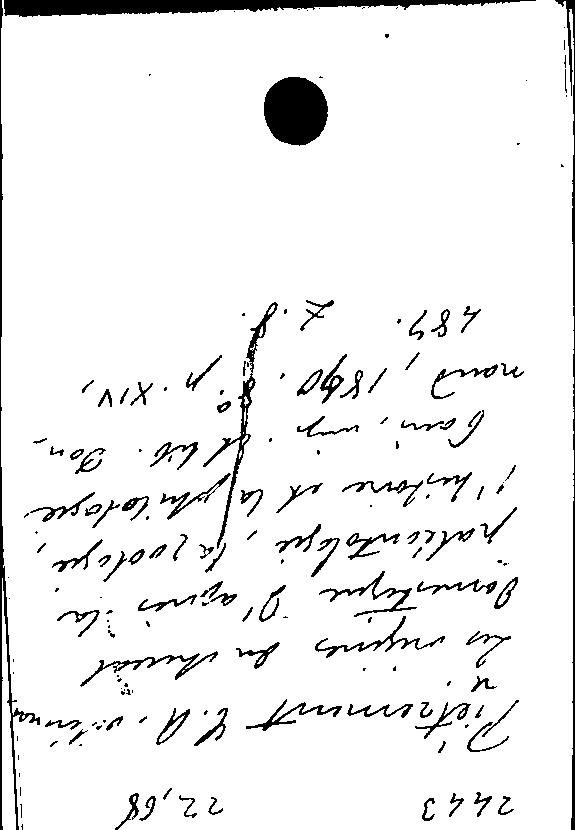 2443 22,68
Piétrement C.A.
Les origines du cheval
domestique d'après la
paléontologie, la zoologie,
l'histoire et la philologie
imp. et lib. Don,
naud, 18 8º. p. XIV,
487. L. f.